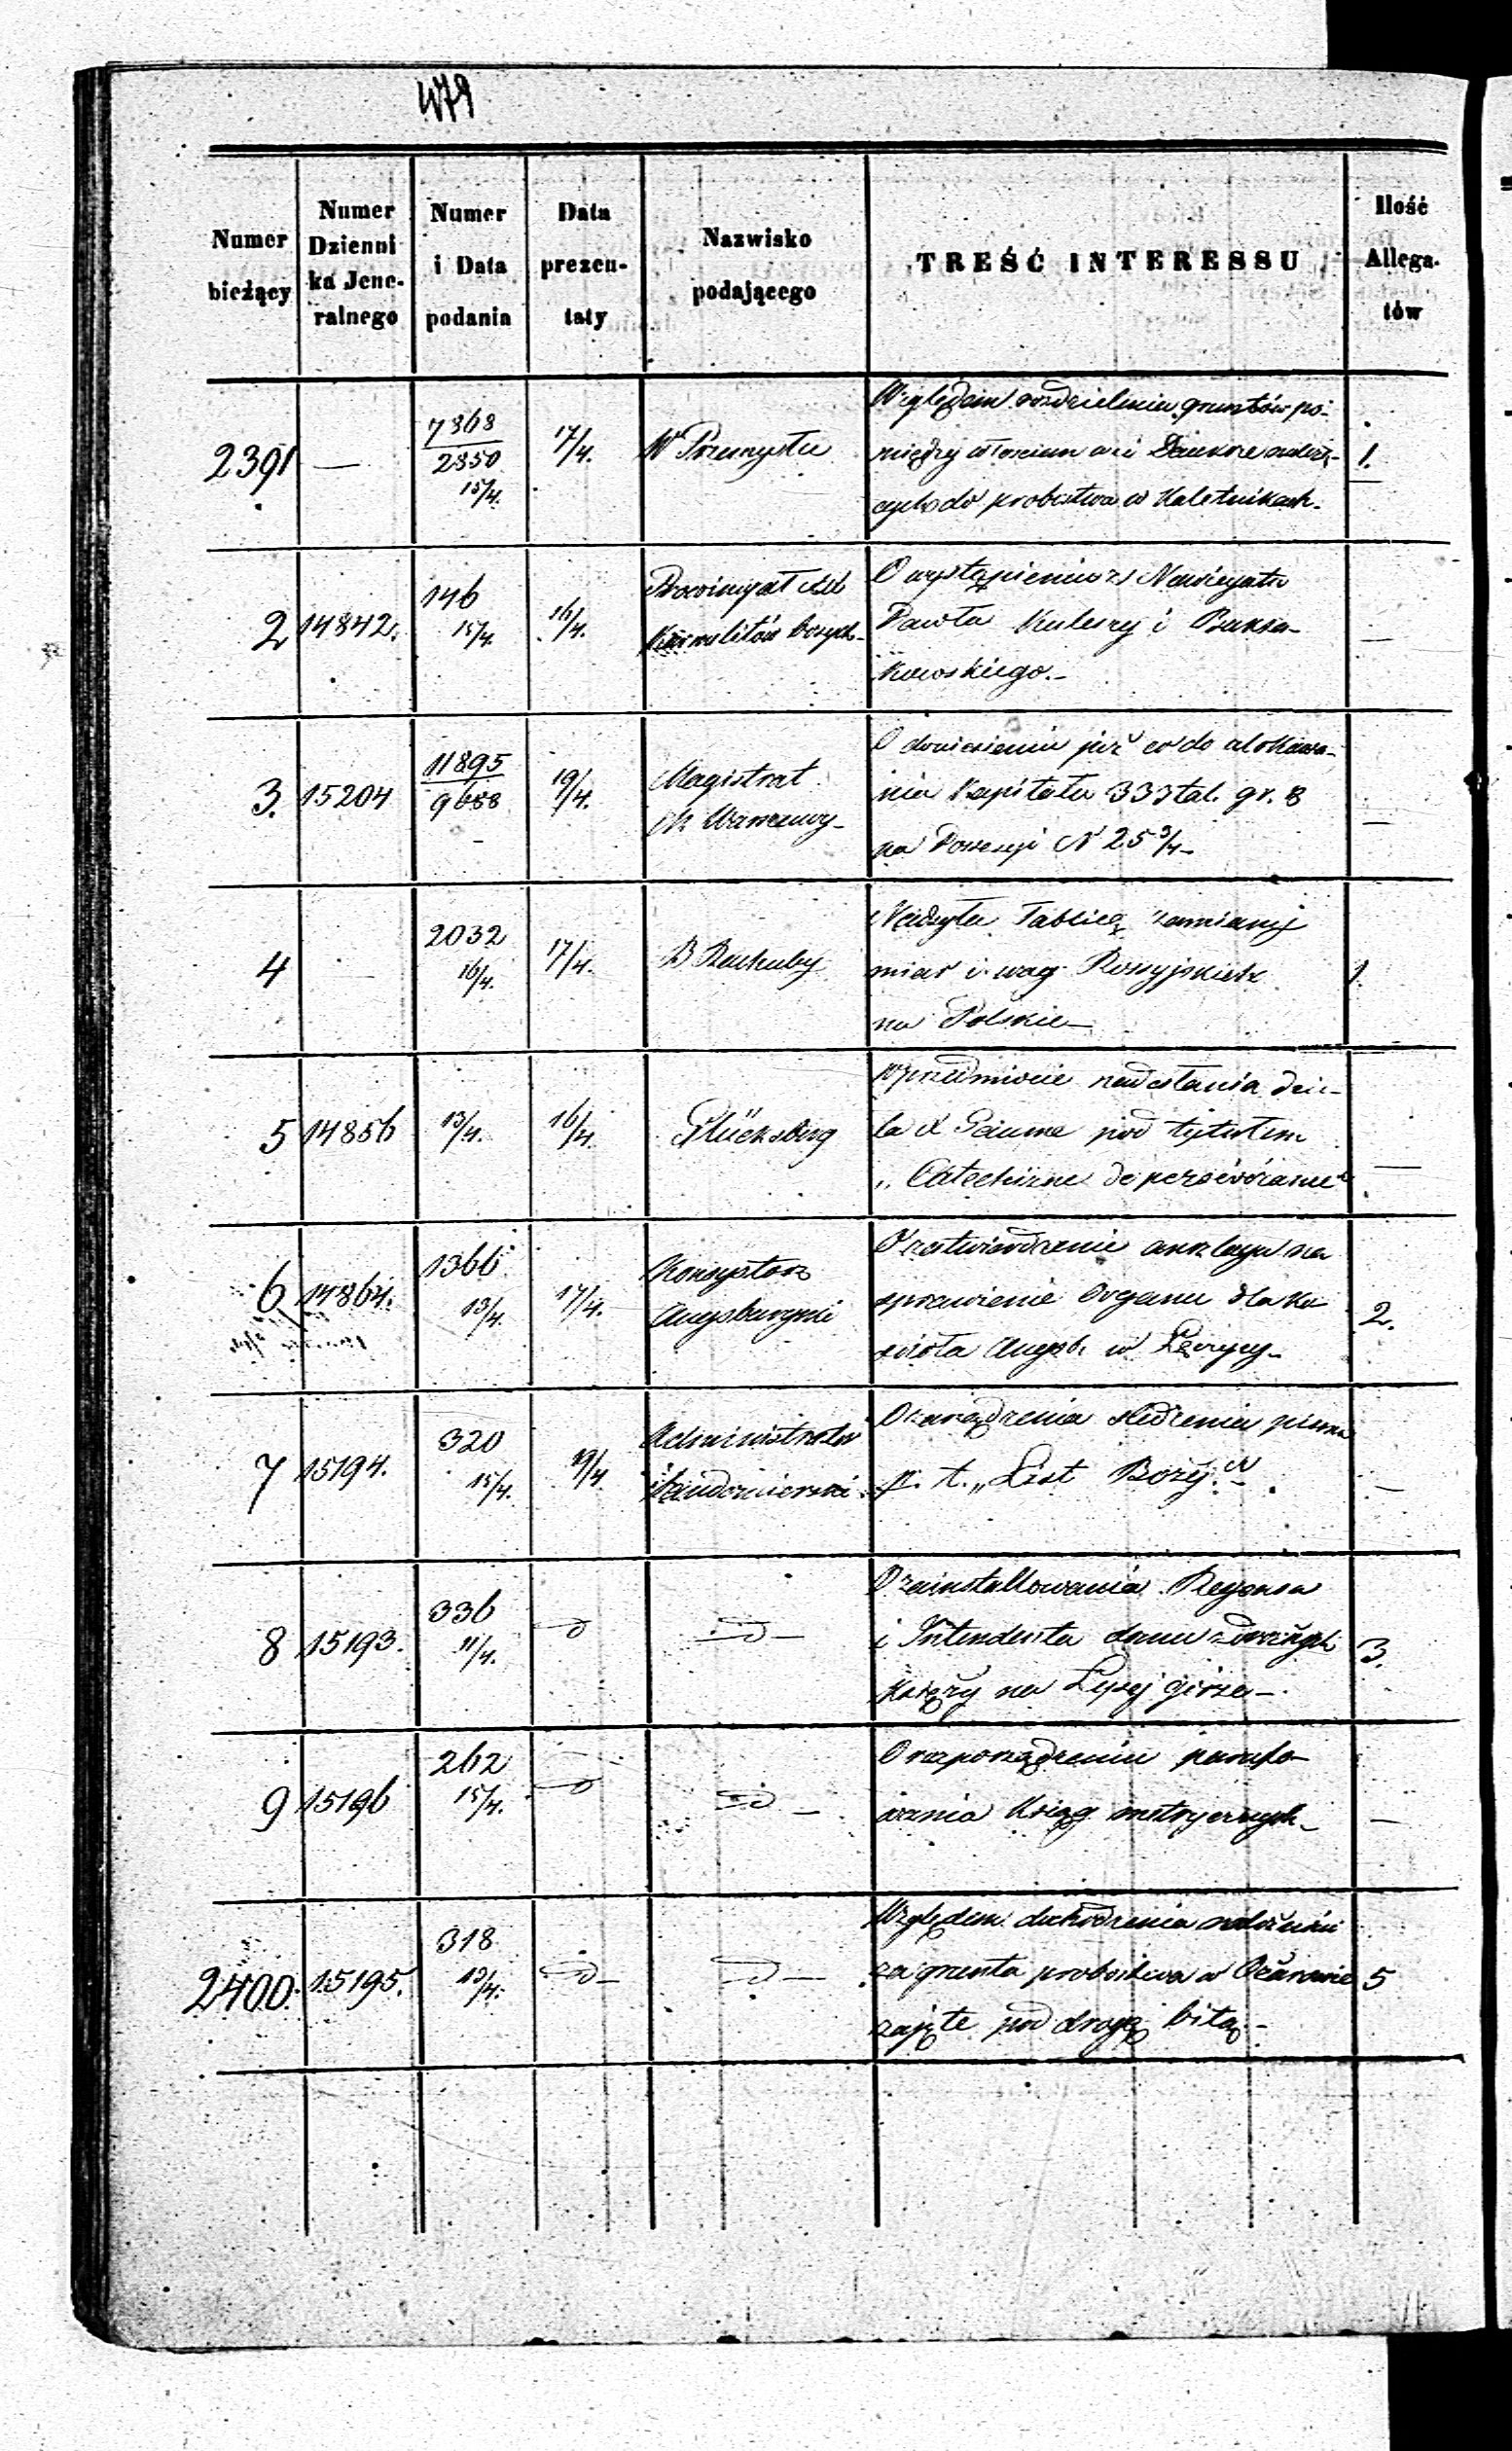 479
Numer bieżący
Numer Dzienni ka Jene- ralnego
Numer i Data podania
Data prezen- taty
Nazwisko podającego
TREŚĆ INTERESSU
Ilość Allega- tów
2391 — 7868/2850 15/4. 17/4. W Przemysłu
Względem rozdzielenia gruntów po-
między włościan wsi należą-
cych do probostwa w Kaletnikach.
1.
2 14842. 146 15/4. 16/4.
Prowincyał
Karmelitów bosych
O wystąpieniu z Nowicyatu
Pawła Kuleszy i
kowskiego.
—
3. 15204 11895/9688 19/4.
Magistrat
M. Warszawy
O doniesienie już co do ulokowa-
nia Kapitału 333 tal. gr. 8
na Possesyi N 25 3/4
—
4 — 2032 16/4. 17/4. B Rachuby
Nadsyła Tablicę zamiany
miar i wag Rossyjskich
na Polskie
1.
5 14856 13/4. 16/4. Glücksberg
W przedmiocie nadesłania dzie-
ła X Geaume pod tytułem
„Catechizme de persévérance"
—
6 14864. 1366 13/4. 17/4.
Konsystorz
Augsburgski
O zatwierdzenie anszlagu na
sprawienie Organu dla Ko
ścioła Augsb. w Łęczycy
2.
7 15194. 320 15/4. 19/4.
Administrator
Sandomierski
O zarządzenia śledzenia pisma
p. t. „List Boży"
—
8 15193. 336 11/4.
O zainstallowania Regensa
i Intendenta domu zdrożnych
Księży na Łysej górze
3.
9 15196 262 15/4.
O rozporządzeniu parafo-
wania Ksiąg metrycznych
—
2400. 15195. 318 13/4.
Względem dochodzenia należności
za grunta probostwa w Ożarowie
zajęte pod drogę bitą.
5